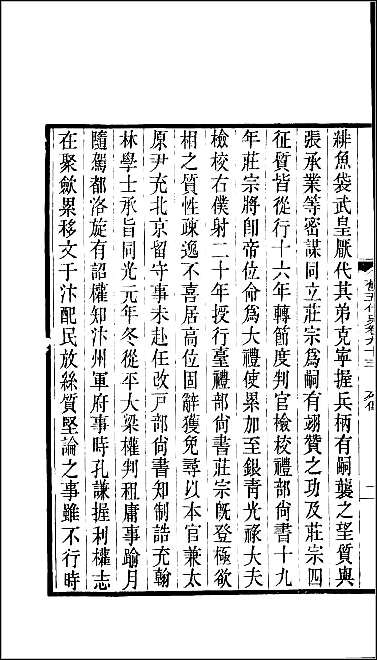 緋魚袋武皇厭代其弟克寧握兵柄有嗣襲之望質與
張承業等密謀同立莊宗爲嗣有翊贊之功及莊宗四
征質皆從行十六年轉節度判官檢校禮部尙書十九
年莊宗將卽帝位命爲大禮使累加至銀青光祿大夫
檢校右僕射二十年授行臺禮部尙書莊宗旣登極欲
相之質性疎逸不喜居高位固辭獲免尋以本官兼太
原尹充北京留守事未赴任改戸部尙書知制誥充翰
林學士承旨同光元年冬從平大梁權判租庸事踰月
隨駕都洛旋有詔權知汴州軍府事時孔謙握利權志
在聚斂累移文于汴配民放絲質堅論之事雖不行時
舊五代史卷九十三